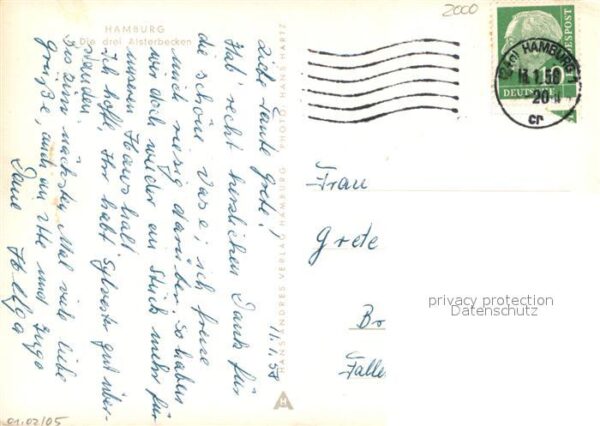 HAMBURG
Die drei Alsterbecken
11.1.58
Liebe Tante Grete!
Hab' recht herzlichen Dank für
die schöne Vase; ich freue
mich riesig darüber. So haben
wir doch wieder ein Stück mehr für
unseren Haushalt.
Ich hoffe, Ihr habt Sylvester gut über-
standen.
Bis zum nächsten Mal viele liebe
Grüße, auch an Ute und Ingo
Deine Helga
HANS ANDRES VERLAG HAMBURG PHOTO: HANS HARTZ
HA
2000
DEUTSCHE BUNDESPOST
10
HAMBURG
1.58
20
cr
Frau
Grete
Bo
Falle
privacy protection
Datenschutz
01.02/05